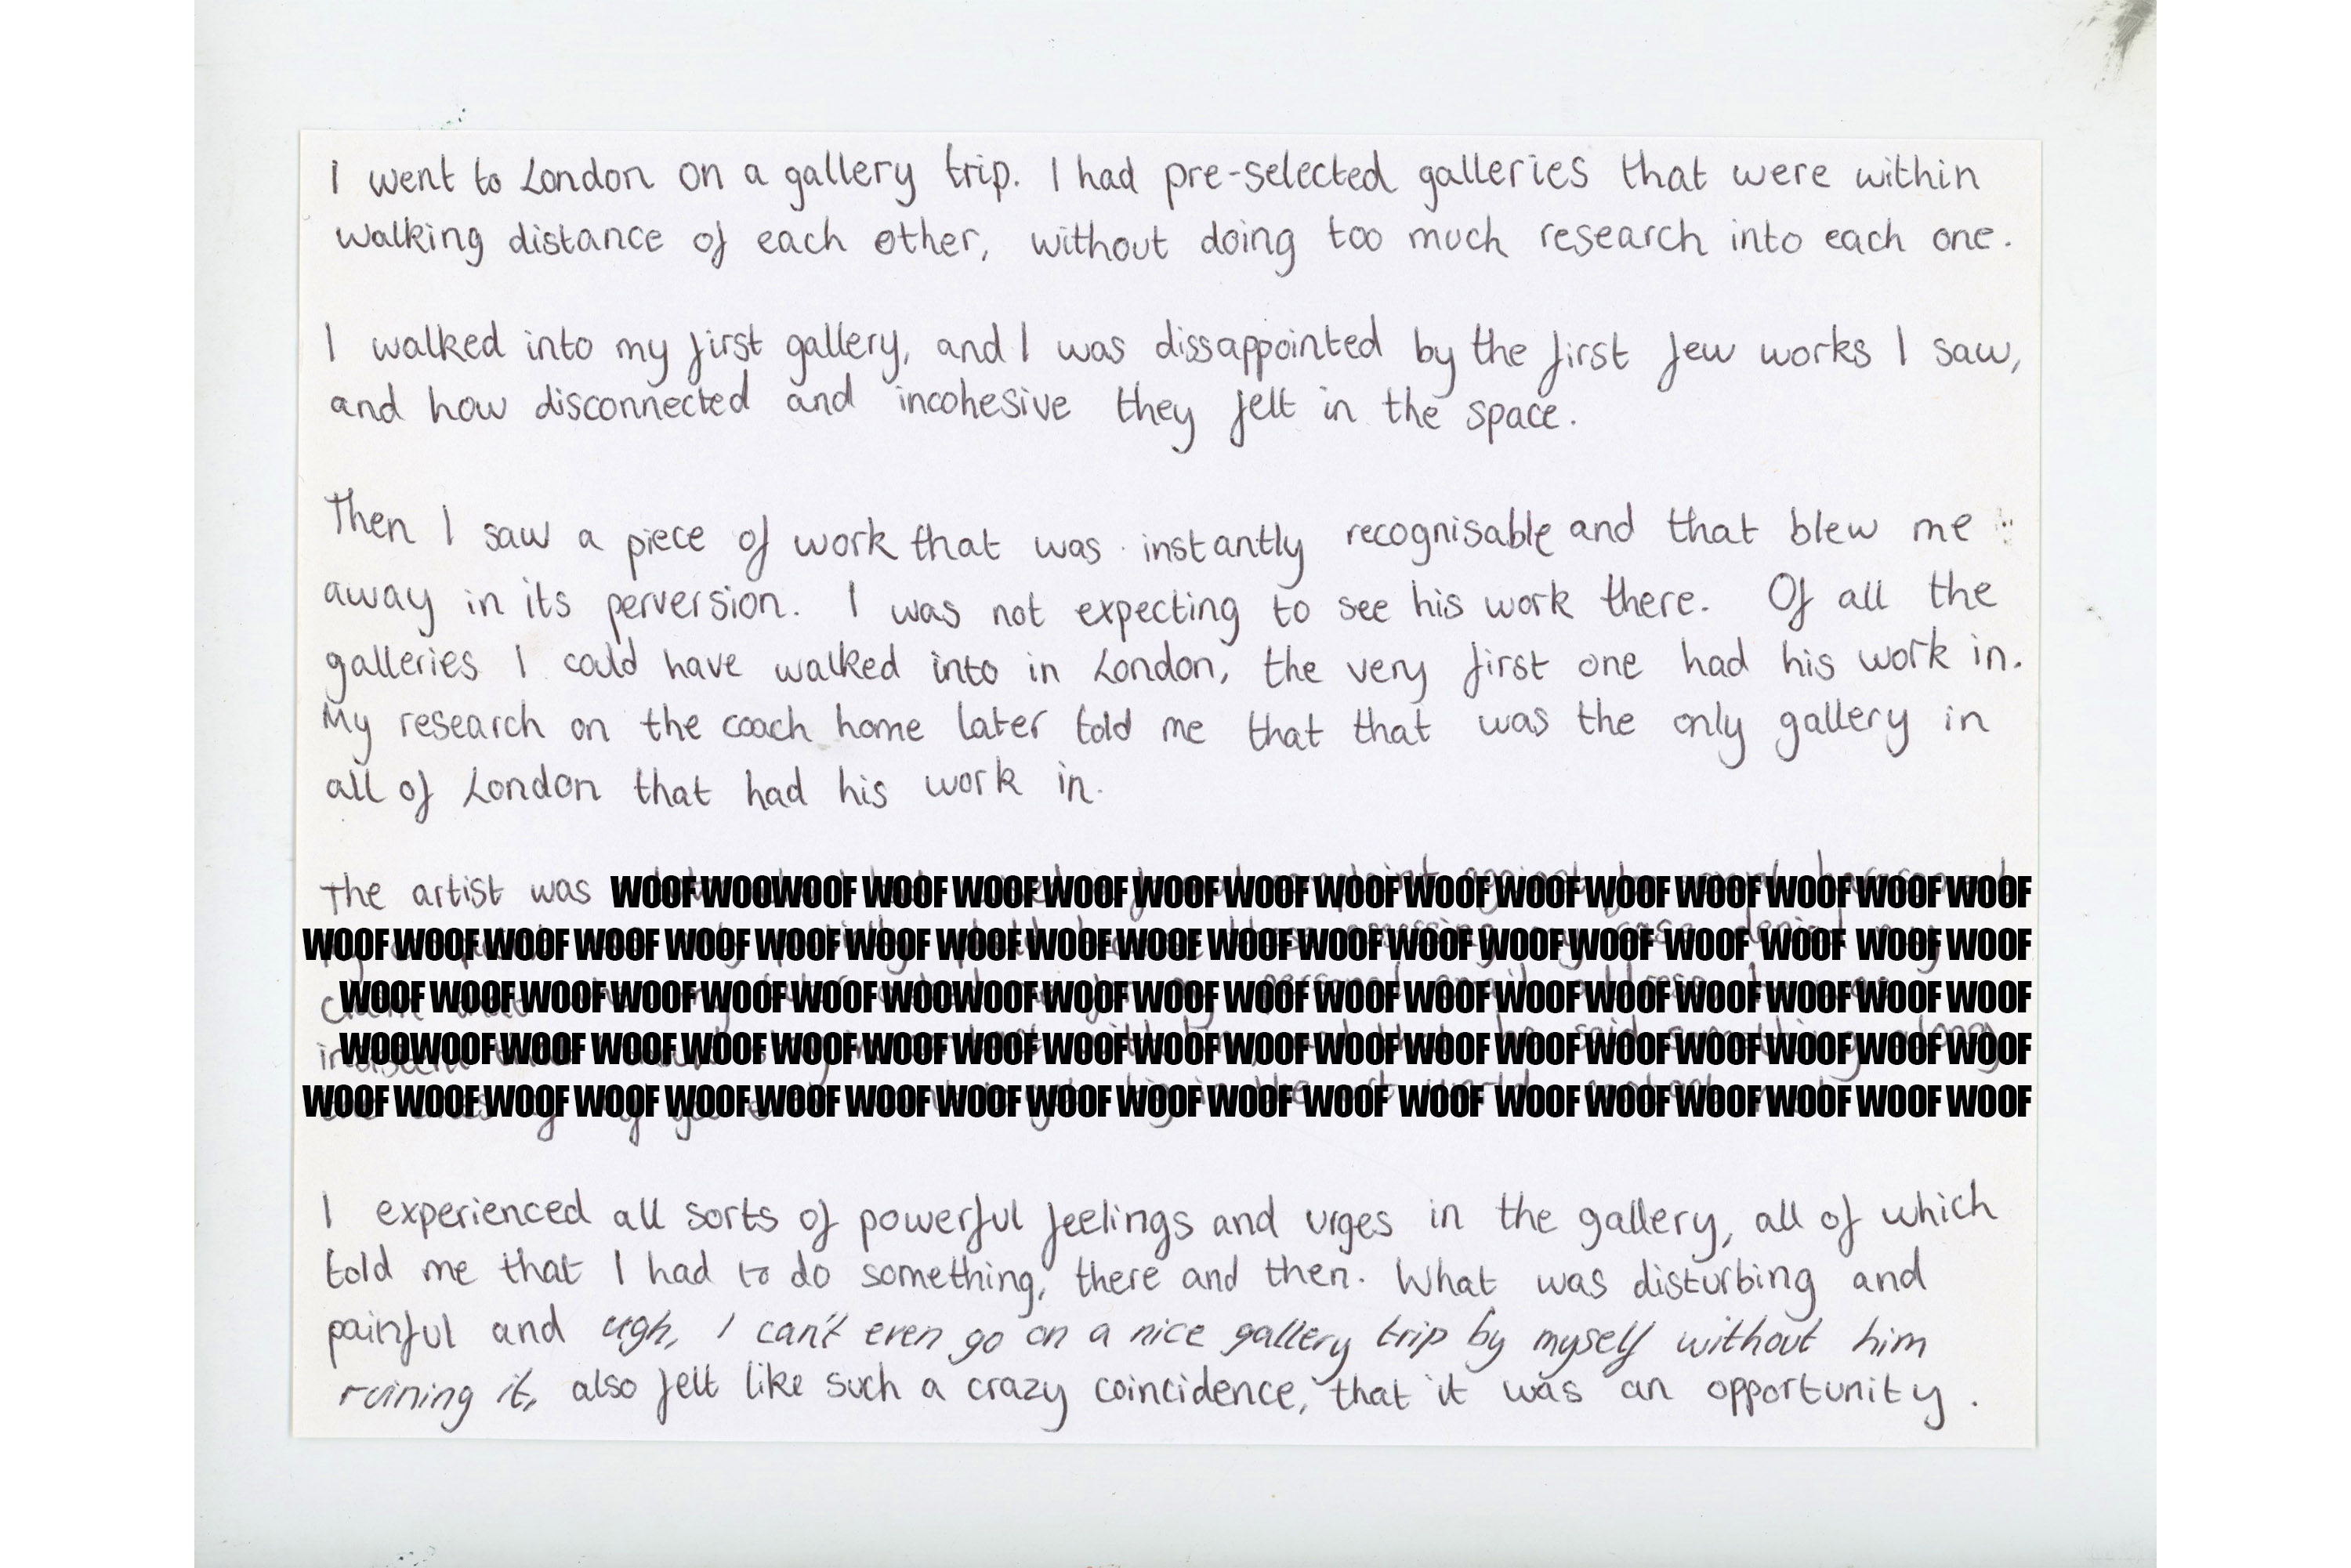 I went to London on a gallery trip. I had pre-selected galleries that were within
walking distance of each other, without doing too much research into each one.
I walked into my first gallery, and I was dissappointed by the first few works I saw,
and how disconnected and incohesive they felt in the space.
Then I saw a piece of work that was instantly recognisable and that blew me
away in its perversion. I was not expecting to see his work there. Of all the
galleries I could have walked into in London, the very first one had his work in.
My research on the coach home later told me that that was the only gallery in
all of London that had his work in.
The artist was WOOF WOOWOOF WOOF WOOF WOOF WOOF WOOF WOOF WOOF WOOF WOOF WOOF WOOF WOOF WOOF
WOOF WOOF WOOF WOOF WOOF WOOF WOOF WOOF WOOF WOOF WOOF WOOF WOOF WOOF WOOF WOOF WOOF WOOF WOOF
WOOF WOOF WOOF WOOF WOOF WOOF WOOWOOF WOOF WOOF WOOF WOOF WOOF WOOF WOOF WOOF WOOF WOOF WOOF
WOOWOOF WOOF WOOF WOOF WOOF WOOF WOOF WOOF WOOF WOOF WOOF WOOF WOOF WOOF WOOF WOOF WOOF WOOF
WOOF WOOF WOOF WOOF WOOF WOOF WOOF WOOF WOOF WOOF WOOF WOOF WOOF WOOF WOOF WOOF WOOF WOOF WOOF
I experienced all sorts of powerful feelings and urges in the gallery, all of which
told me that I had to do something, there and then. What was disturbing and
painful and ugh, I can't even go on a nice gallery trip by myself without him
ruining it, also felt like such a crazy coincidence, that it was an opportunity.